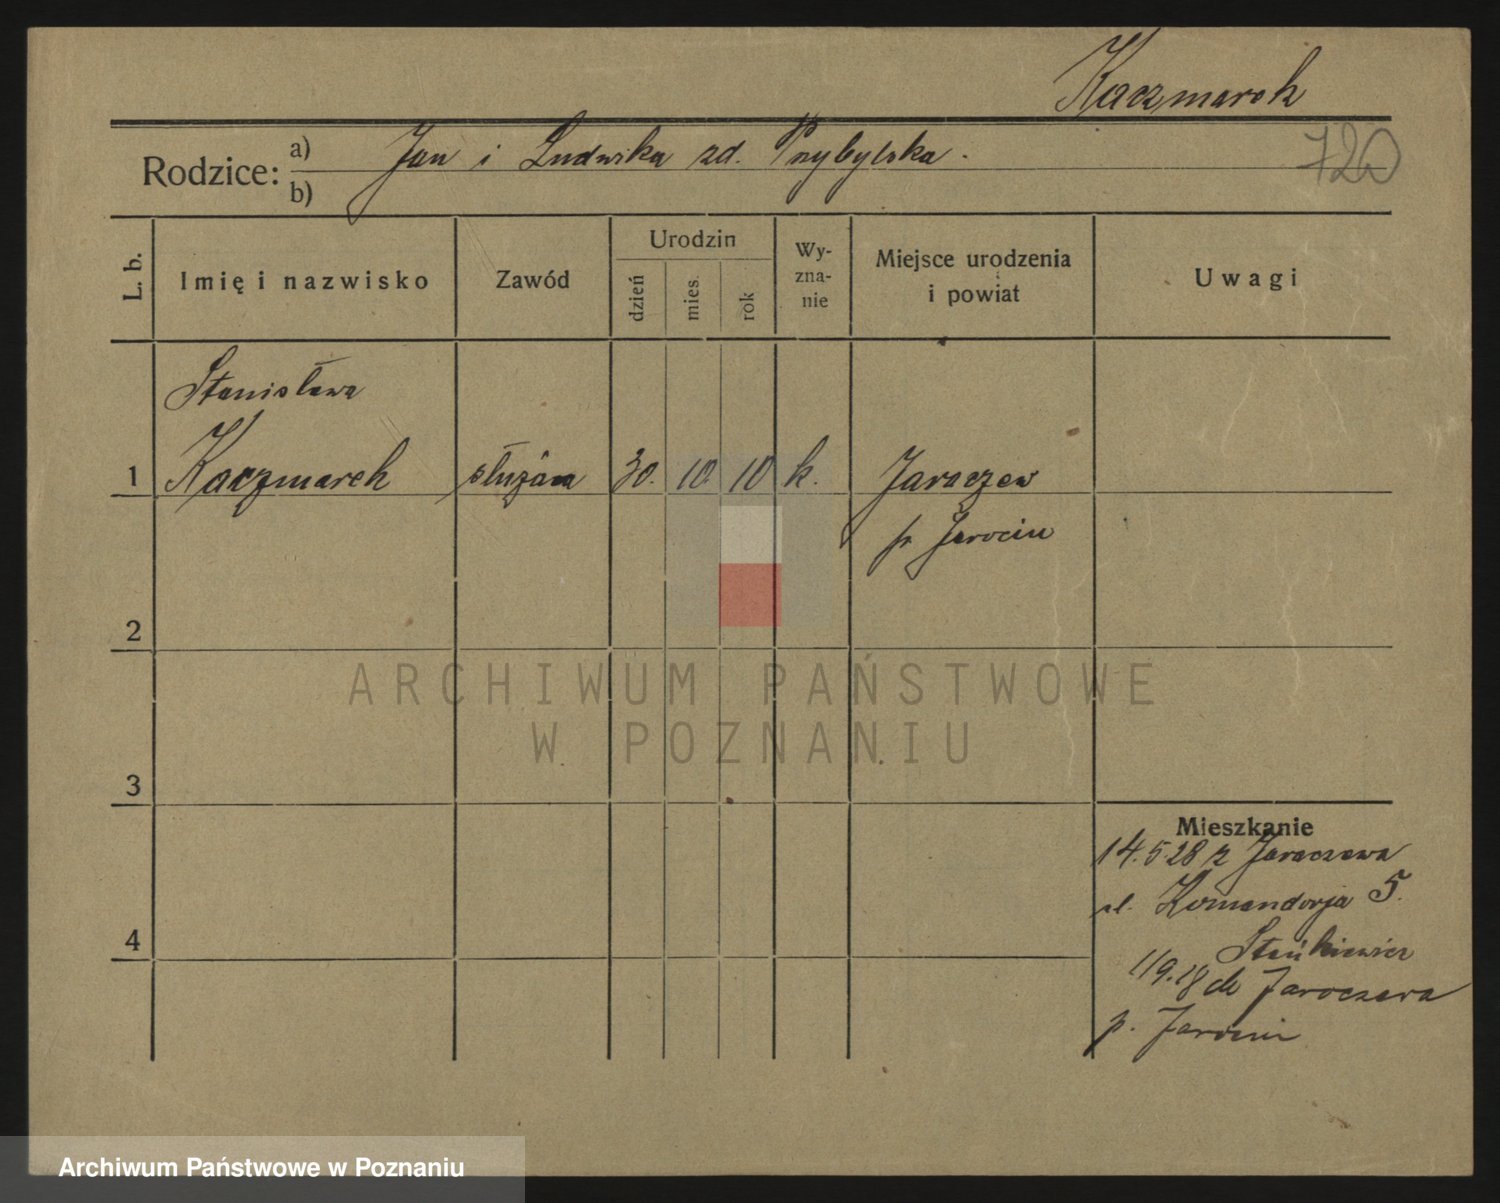 Kaczmarek
720
Rodzice: a) Jan i Ludwika zd. Przybylska.
b)
L. b.
Imię i nazwisko
Zawód
Urodzin
dzień
mies.
rok
Wy-
zna-
nie
Miejsce urodzenia
i powiat
Uwagi
Stanisława
1 Kaczmarek służąca 30. 10 10 k. Jaraczew
p. Jarocin
2
3
4
Mieszkanie
14.5.28 z Jaraczewa
ul. Komandorja 5.
Stańkiewicz
1/9.28 do Jaraczewa
p. Jarocin
ARCHIWUM PAŃSTWOWE
W POZNANIU
Archiwum Państwowe w Poznaniu